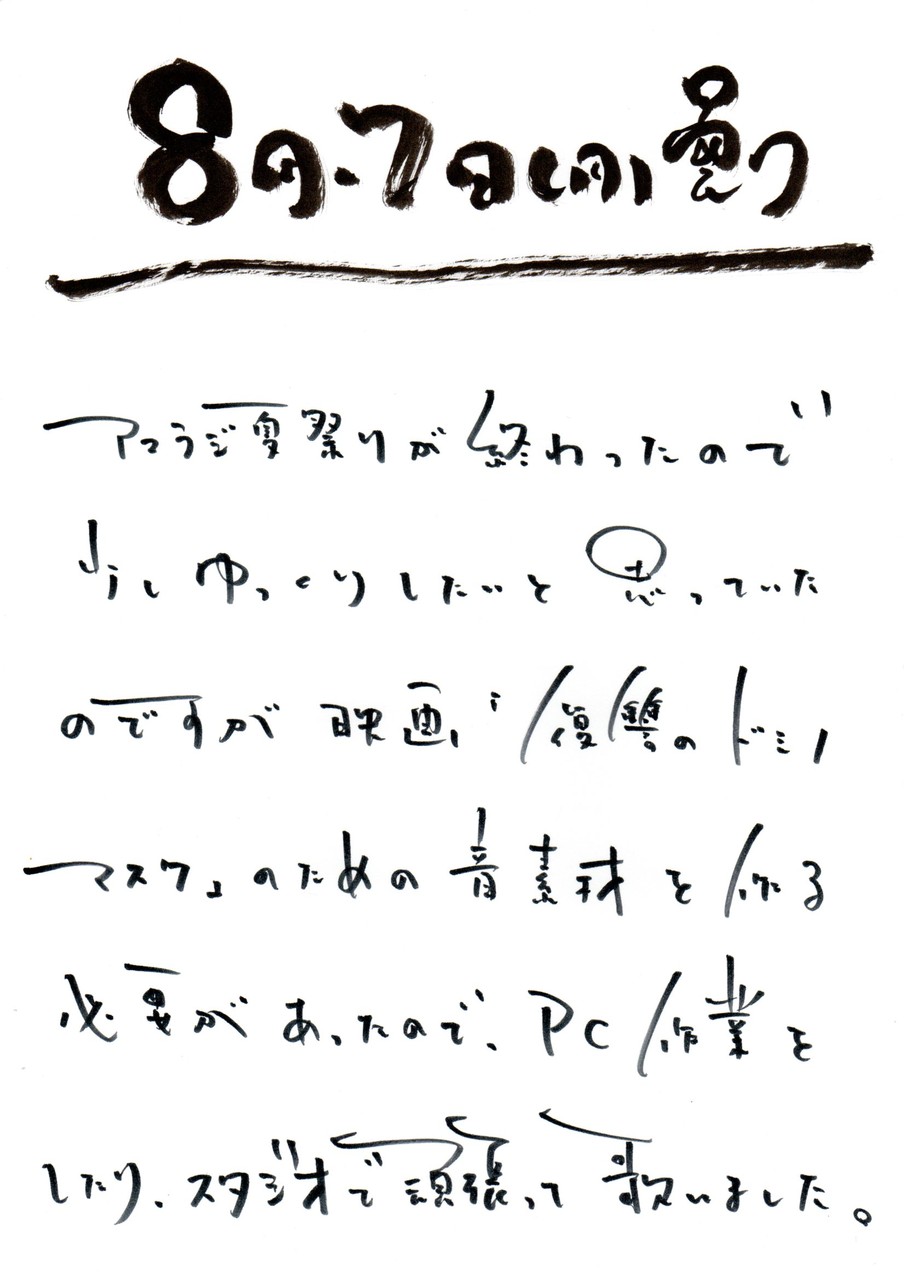 8月7日(月)曇り
アコラジ夏祭りが終わったので
少しゆっくりしたいと思っていた
のですが映画「復讐のドミノ
マスク」のための音素材を作る
必要があったので、PC作業を
したり、スタジオで頑張って歌いました。